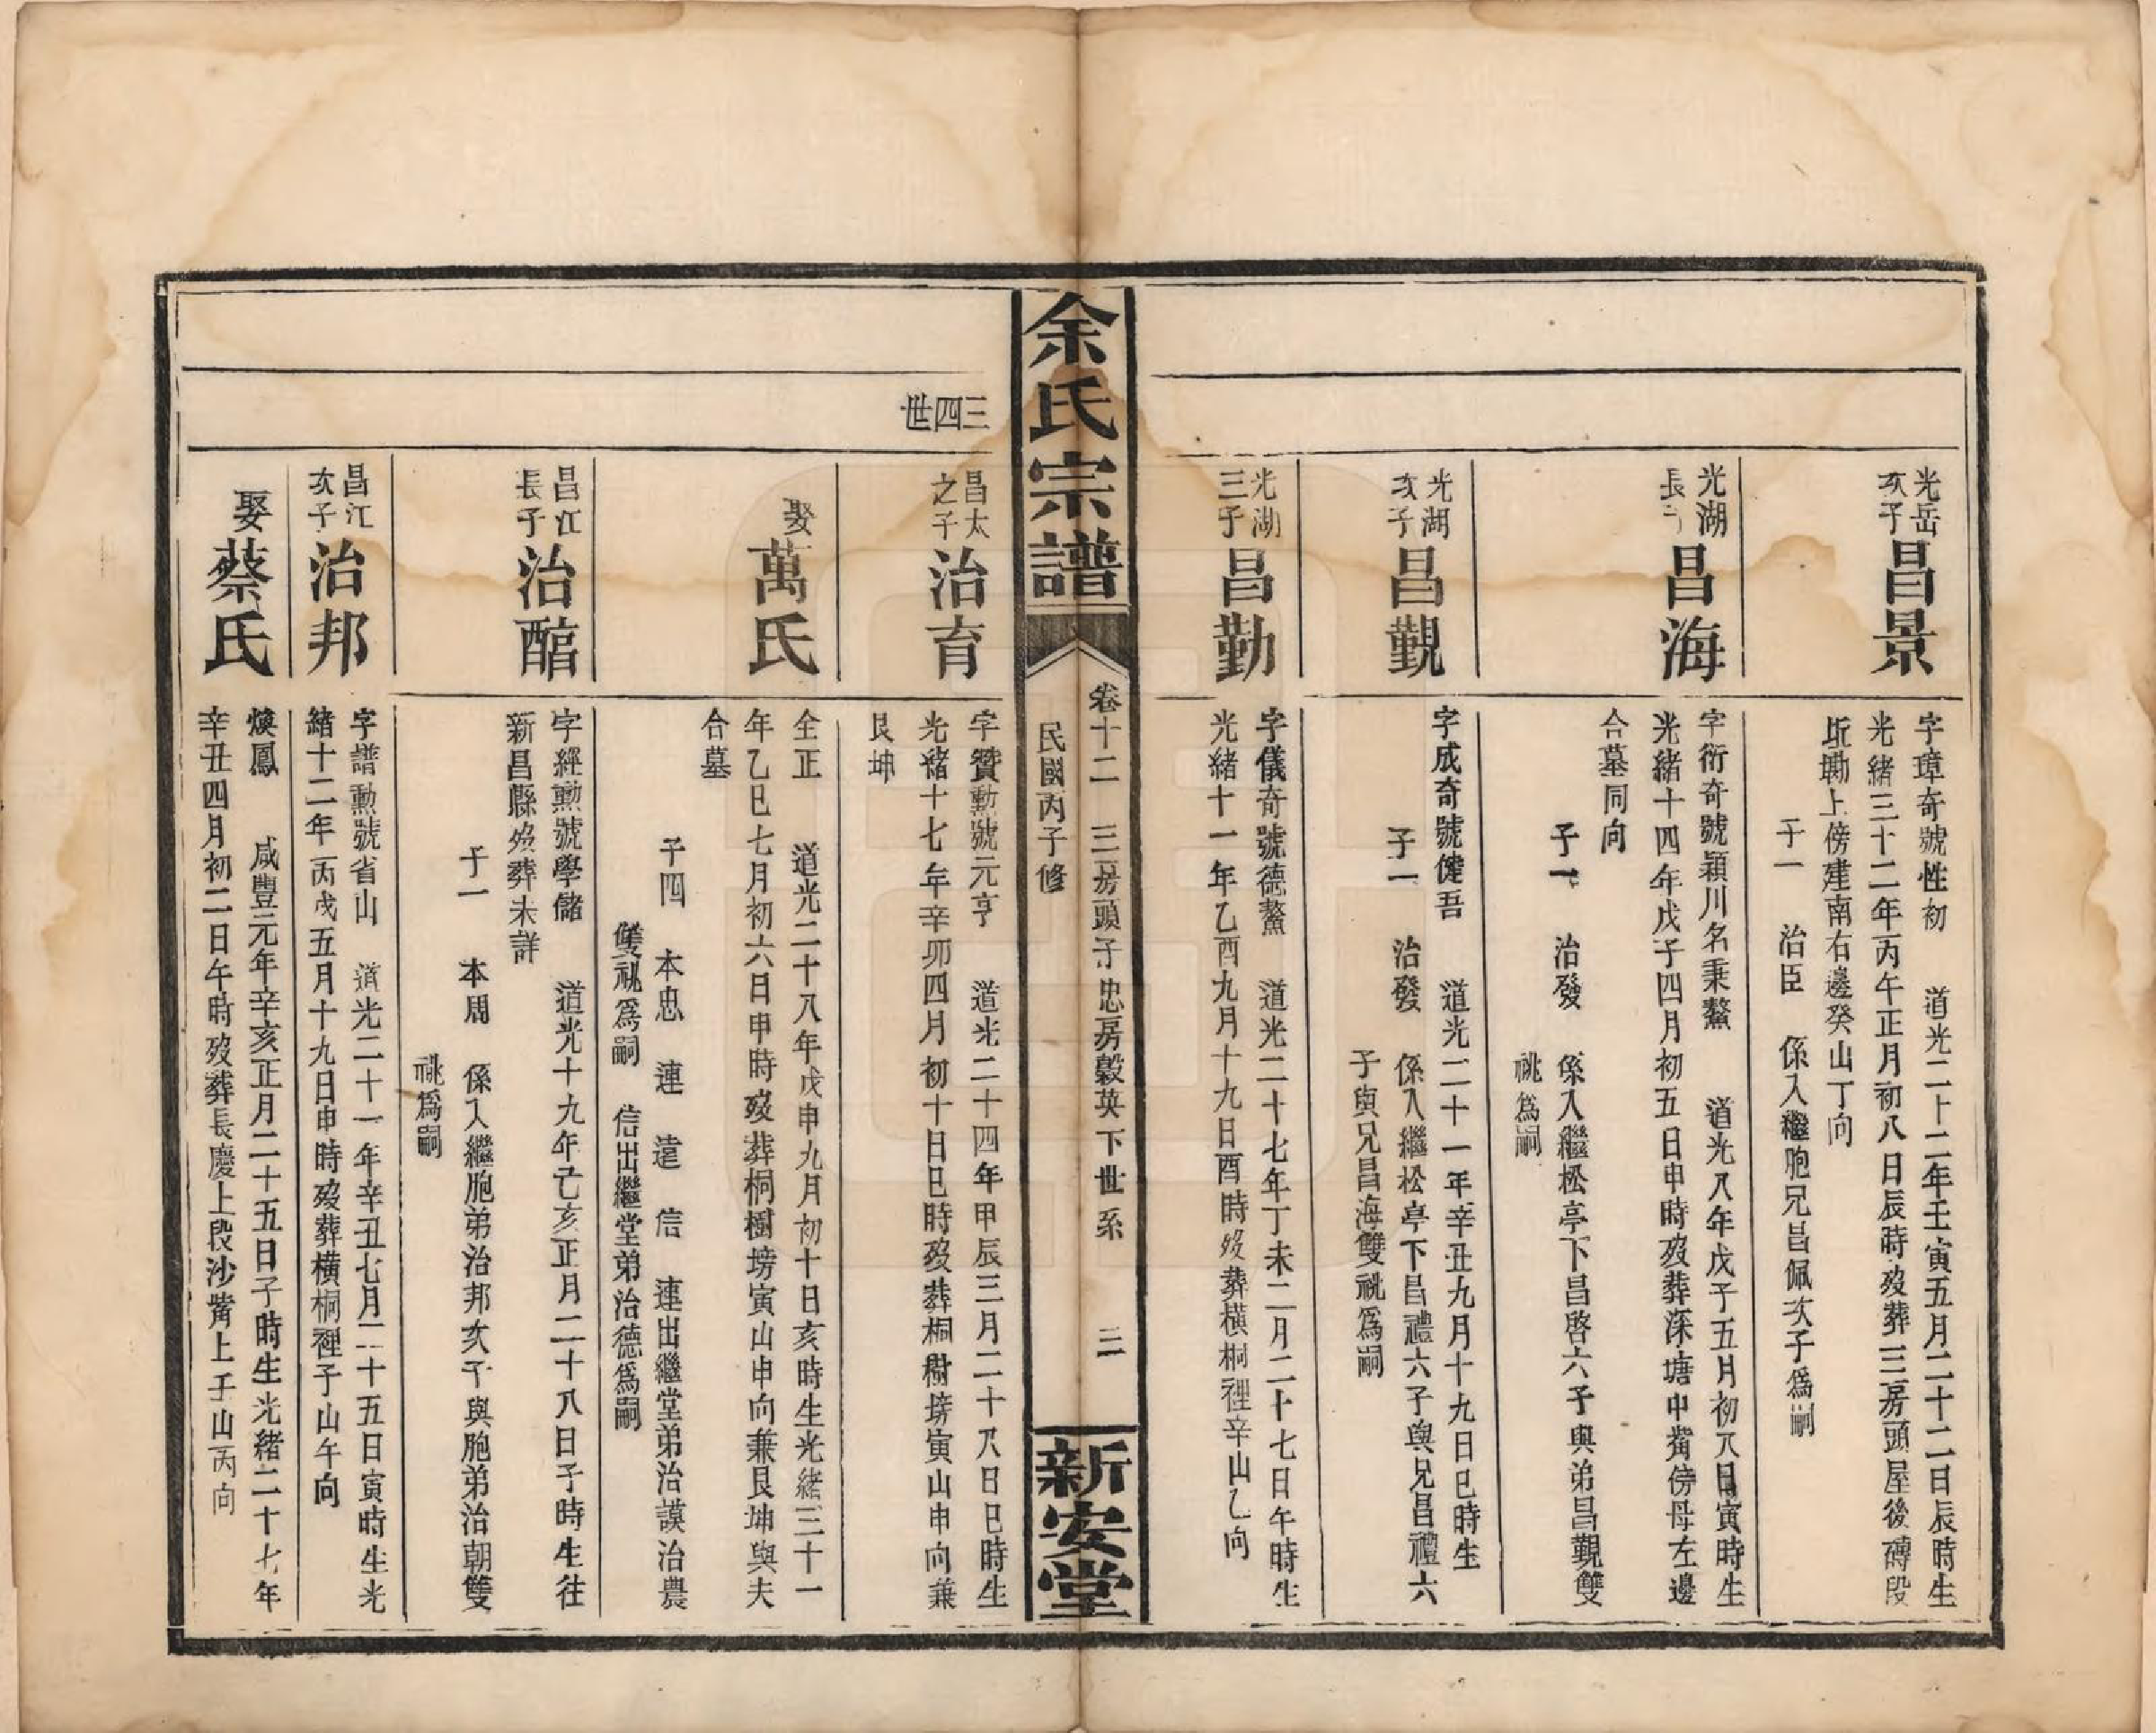 光岳
次子
昌景
字璋奇號性初　道光二十二年壬寅五月二十二日辰時生
光緒三十二年丙午正月初八日辰時歿葬三房頭屋後磚段
坵墈上傍建南右邊癸山丁向
子一　治臣　係入繼胞兄昌佩次子爲嗣
光湖
長子
昌海
字衍奇號穎川名秉鰲　道光八年戊子五月初八日寅時生
光緒十四年戊子四月初五日申時歿葬深塘中嘴傍母左邊
合墓同向
子一　治發　係入繼松亭下昌啓六子與弟昌觀雙
祧爲嗣
光湖
次子
昌觀
字成奇號健吾　道光二十一年辛丑九月十九日巳時生
子一　治發　係入繼松亭下昌禮六子與兄昌禮六
子與兄昌海雙祧爲嗣
光湖
三子
昌勤
字儀奇號德鰲　道光二十七年丁未二月二十七日午時生
光緒十一年乙酉九月十九日酉時歿葬橫桐裡辛山乙向
余氏宗譜
卷十二　三房頭子忠房穀英下世系　三
民國丙子修
新安堂
三四世
昌太
之子
治育
字贊勳號元亨　道光二十四年甲辰三月二十八日巳時生
光緒十七年辛卯四月初十日巳時歿葬桐樹塝寅山申向兼
艮坤
娶
萬氏
全正　道光二十八年戊申九月初十日亥時生光緒三十一
年乙巳七月初六日申時歿葬桐樹塝寅山申向兼艮坤與夫
合墓
子四　本忠　連　達　信　連出繼堂弟治謨治農
雙祧爲嗣　信出繼堂弟治德爲嗣
昌江
長子
治醕
字經勳號學儲　道光十九年己亥正月二十八日子時生往
新昌縣歿葬未詳
子一　本周　係入繼胞弟治邦次子與胞弟治朝雙
祧爲嗣
昌江
次子
治邦
字譜勳號省山　道光二十一年辛丑七月二十五日寅時生光
緒十二年丙戌五月十九日申時歿葬橫桐裡子山午向
娶
蔡氏
煥鳳　咸豐元年辛亥正月二十五日子時生光緒二十七年
辛丑四月初二日午時歿葬長慶上段沙嘴上壬山丙向